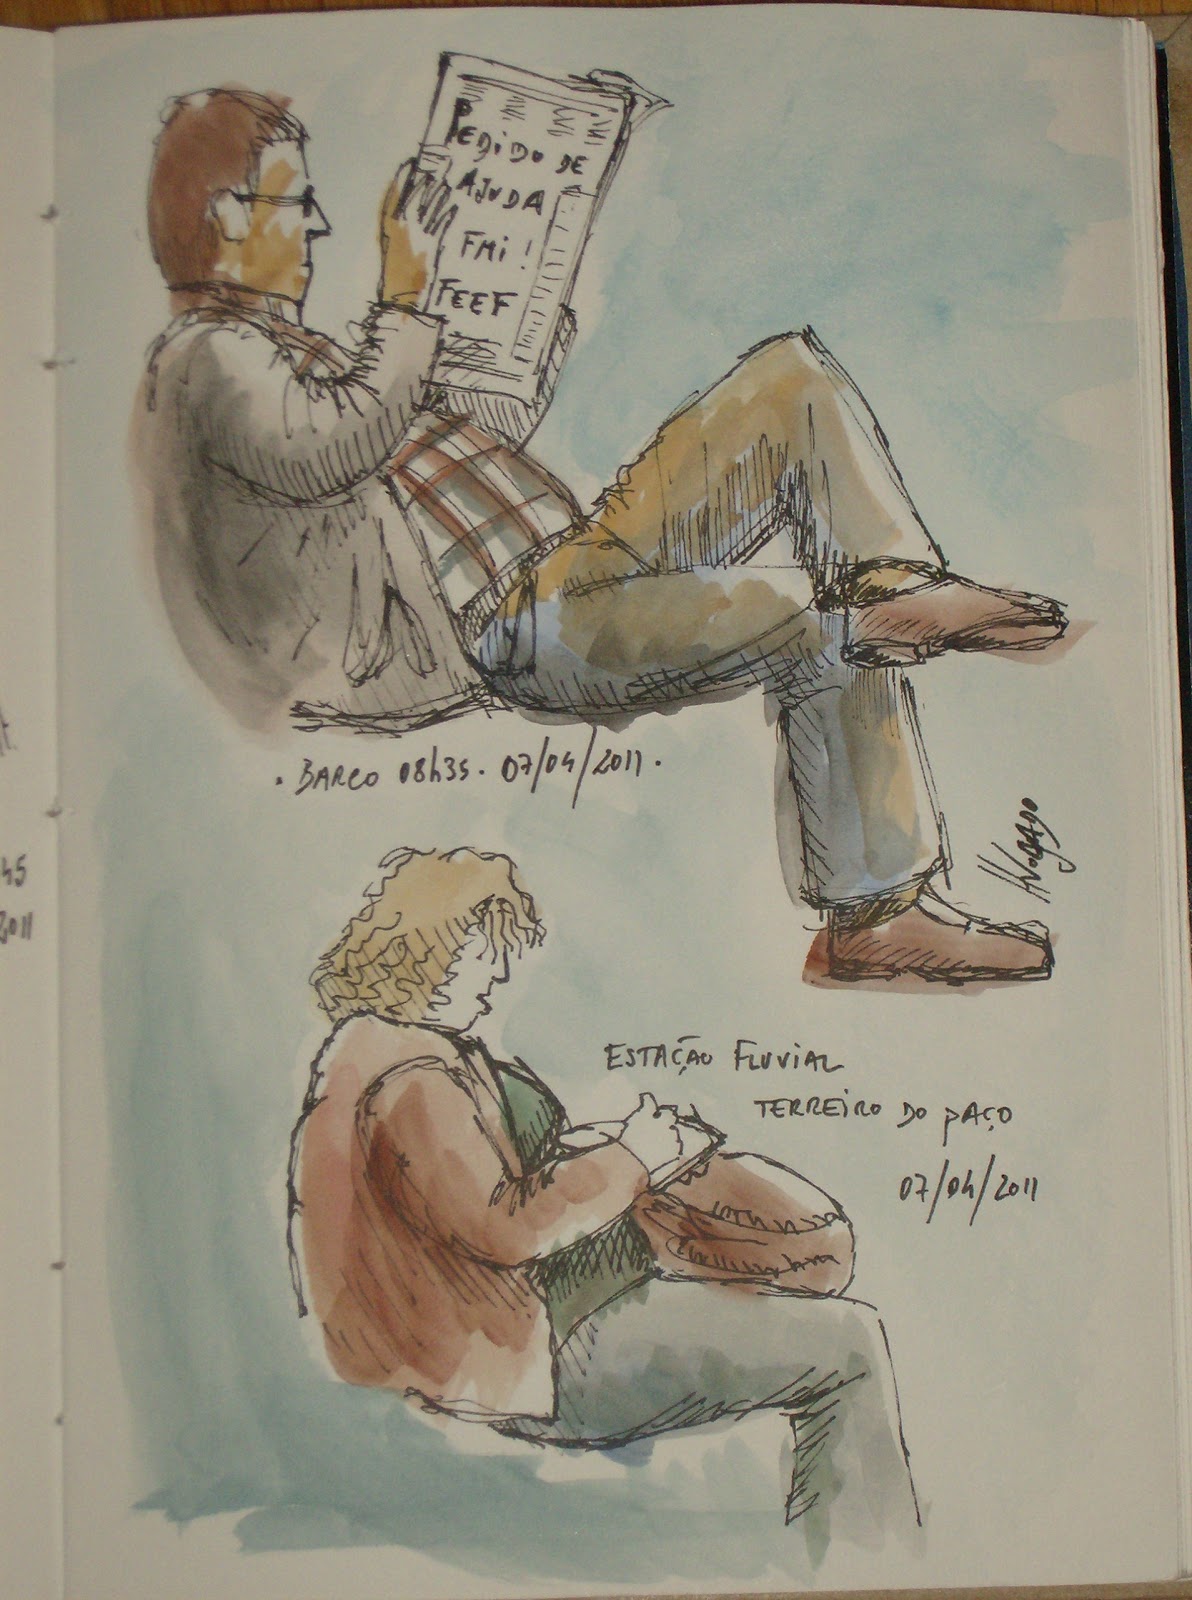 PEDIDO DE
AJUDA
FMI!
FEEF
. BARCO 08h35. 07/04/2011.
ESTAÇÃO FLUVIAL
TERREIRO DO PAÇO
07/04/2011
2011